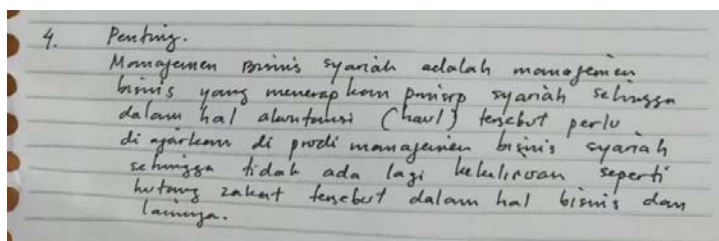 4. Penting.
Manajemen Bisnis syariah adalah manajemen
bisnis yang menerapkan prinsip syariah sehingga
dalam hal akuntansi (haul) tersebut perlu
di ajarkan di prodi manajemen bisnis syariah
sehingga tidak ada lagi kekeliruan seperti
hutang zakat tersebut dalam hal bisnis dan
lainnya.